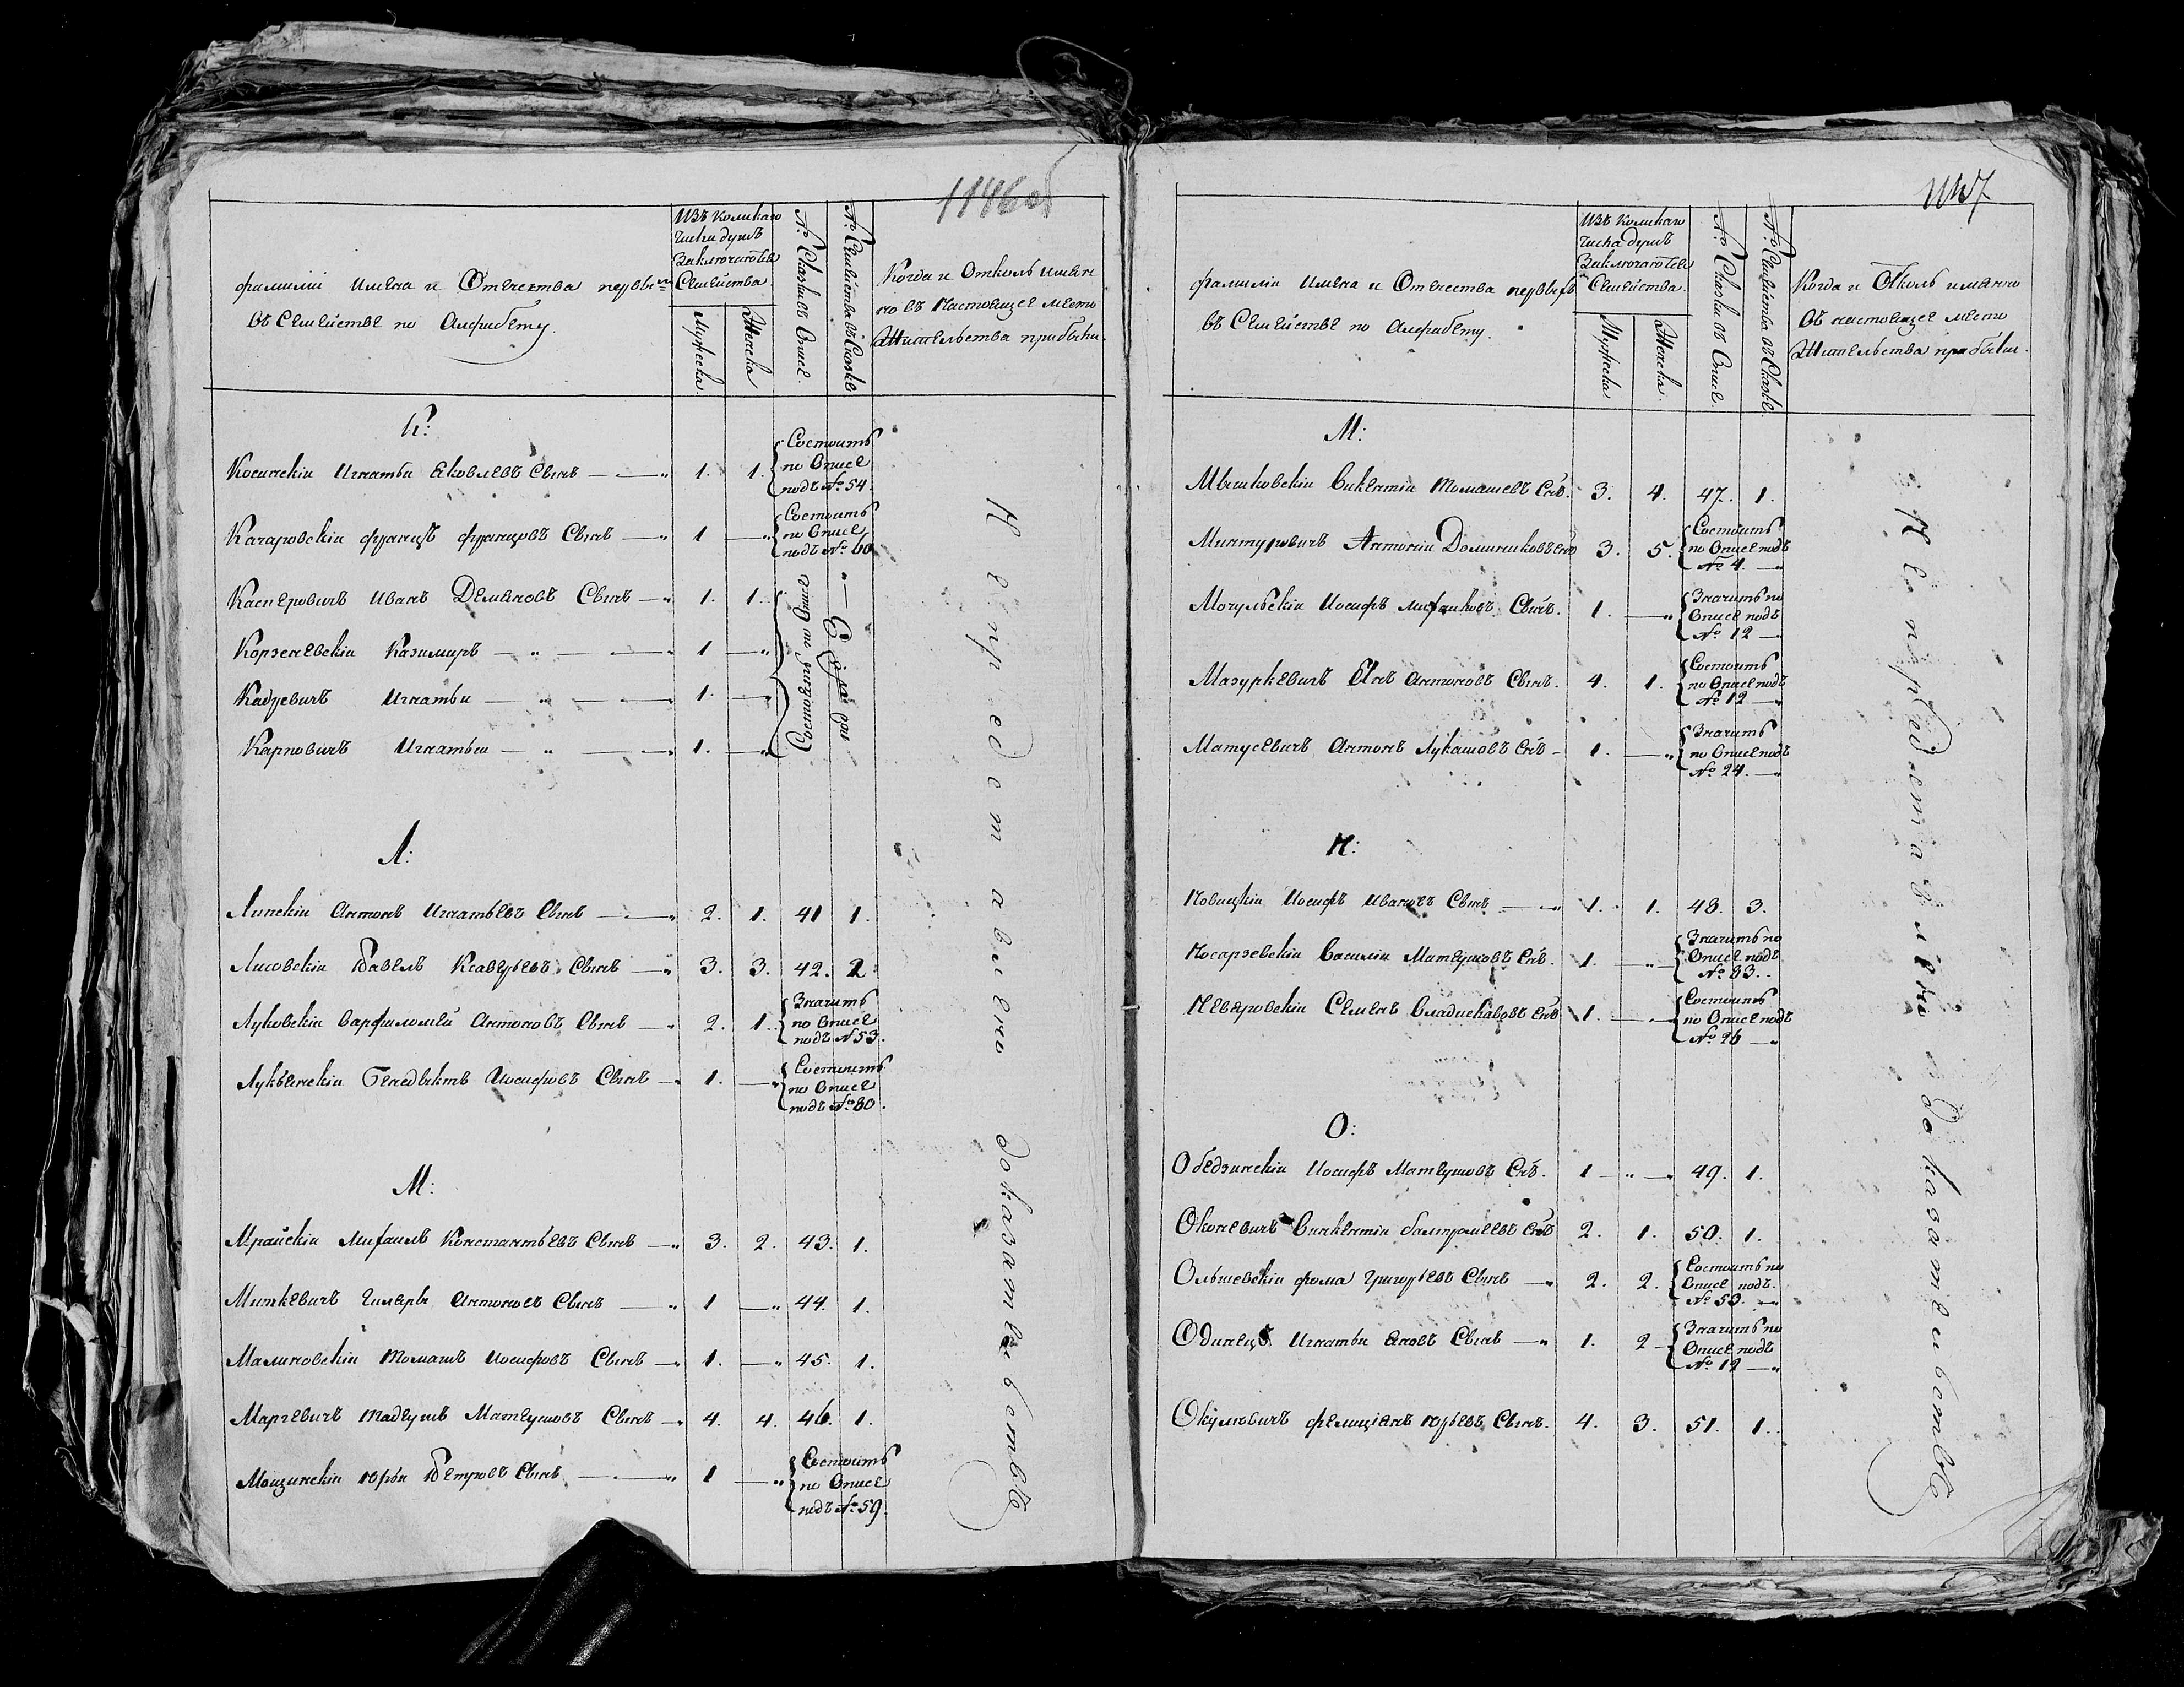 1146об
фамилии имена и Отечества первыхъ
въ Семействе по Алфабету.
Изъ коликаго
числа душъ
Заключаются
Семейства
Мужеска.
Женска
№ Сказки въ Описе.
№ Семейства въ Сказке
Когда и Отколь имян
но въ настоящее место
Жительства прибыли.
К:
Косинскии Игнатыи Яковлевъ Сынъ — „ 1. 1. Состоитъ
по Описе
подъ № 54.
Качаровскии францъ францовъ Сынъ — „ 1 — „ Состоитъ
по Описе
подъ № 60
Касперовичъ Иванъ Деменовъ Сынъ — „ 1. 1.
Корженевскии Казимиръ — „ — „ 1 — „
Кадзевичъ Игнатыи — „ — „ 1. — „
Карповичъ Игнатыи — „ — „ 1. — „
Л:
Липскии Антонъ Игнатьевъ Сынъ — „ 2. 1. 41 1.
Лисовскии Павелъ Ксаверьевъ Сынъ — „ 3. 3. 42. 2
Луковскии Варфиломей Антоновъ Сынъ — „ 2. 1. Значитъ
по Описе
подъ № 53.
Лукьянскии Бенедыктъ Иосифовъ Сынъ — „ 1. — „ Состоитъ
по Описе
подъ № 80.
М:
Мрайскии Михаилъ Константьевъ Сынъ — „ 3. 2. 43. 1.
Миткевичъ Антоновъ Сынъ — „ 1 — „ 44. 1.
Малиновскии Томашъ Иосифовъ Сынъ — „ 1. — „ 45. 1.
Марчевичъ Тадеушъ Матеушовъ Сынъ — „ 4. 4. 46. 1.
Мощинскии Юрьи Петровъ Сынъ — „ 1 — „ Состоитъ
по Описе
подъ № 59.
Непредставлено доказательствъ
1147
фамилии имена и Отечества первыхъ
въ Семействе по Алфабету.
Изъ коликаго
числа душъ
Заключаются
Семейства.
Мужеска
Женска.
№ Сказки въ Описе.
№ Семейства въ Сказке.
Когда и Отколь имянно
въ настоящее место
Жительства прибыли.
М:
Мышковскии Викентии Томашевъ Снъ. 3. 4. 47. 1.
Минтуревичъ Антонии Доминиковъ Снъ 3. 5. Состоитъ
по Описе подъ
№ 4. — „
Могульскии Иосифъ Сынъ. 1. — „ Значитъ по
Описе подъ
№ 12 — „
Мазуркевичъ Янъ Антоновъ Сынъ. 4. 1. Состоитъ
по Описе подъ
№ 12 — „
Матусевичъ Антонъ Лукашовъ Снъ — 1. — „ Значитъ
по Описе подъ
№ 24. — „
Н:
Новицкии Иосифъ Ивановъ Сынъ — „ 1. 1. 48. 3.
Носаржевскии Василии Матеушовъ Снъ. 1. — „ — Значитъ по
Описе подъ
№ 83.
Неверовскии Семенъ Владиславовъ Снъ 1. — Состоитъ
по Описе подъ
№ 26 — „
О:
Обедзинскии Иосифъ Матеушовъ Снъ. 1 — „ — „ 49. 1.
Оконевичъ Винкентии Балтромеевъ Снъ 2. 1. 50. 1.
Ольшевскии фома Григорьевъ Сынъ — „ 2. 2. Состоитъ по
Описе подъ.
№ 53. — „
Одинецъ Игнатыи Яновъ Сынъ — „ 1. 2 — Значитъ по
Описе подъ
№ 12 — „
Окуловичъ фелициянъ Юрьевъ Сынъ. 4. 3. 51. 1.
Непредставлено доказательствъ